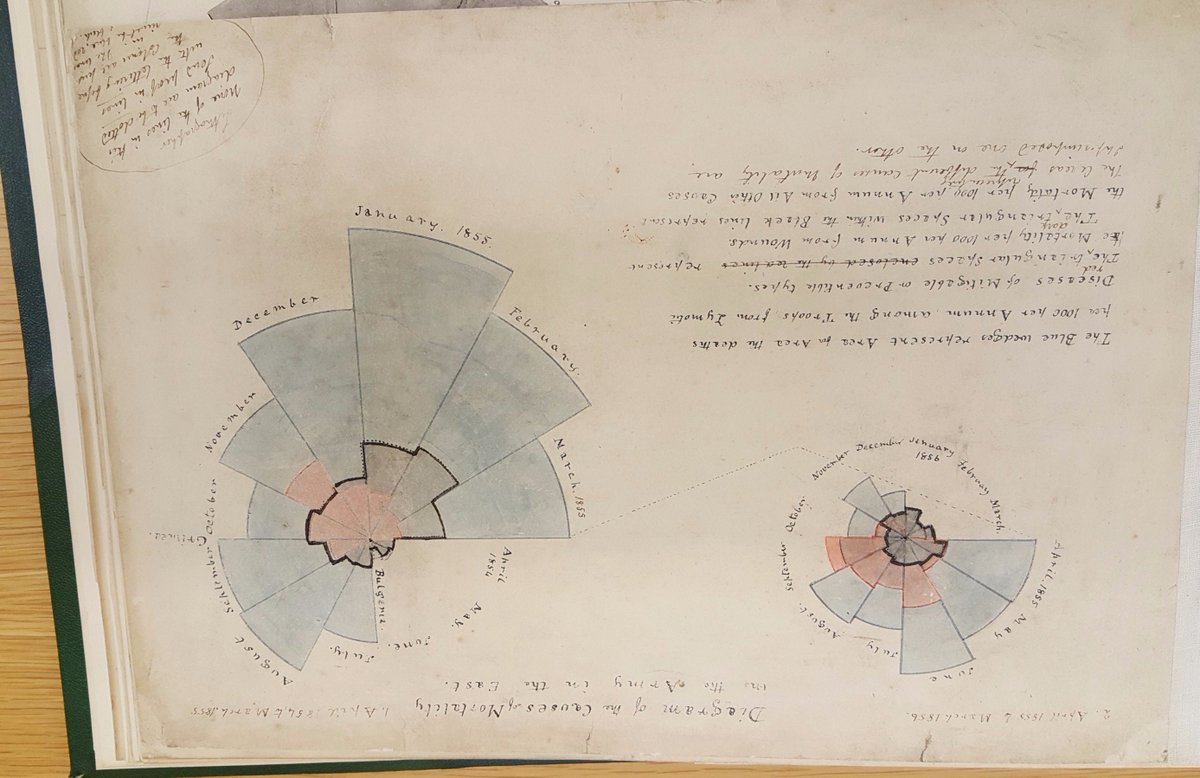 2. April 1855 to March 1856
Diagram of the Causes of Mortality
in the Army in the East.
1. April 1854 to March 1855
April 1855
May
June
July
August
September
October
November
December
January
1856
February
March.
April
1854
May.
June.
July.
Bulgaria.
August
September
Crimea.
October
November
December
January. 1855.
February.
March 1855
The Blue wedges represent Area for Area the deaths
per 1000 per Annum among the Troops from Zymotic
Diseases of Mitigable or Preventible types.
The red triangular spaces enclosed by the red lines represent
the Mortality per 1000 per Annum from Wounds
The dark triangular Spaces within the Black lines represent
the Mortality per 1000 per Annum from All Other Causes
The Areas for the different causes of Mortality are
superimposed one on the other.
Lithographer
None of the lines in this
diagram are to be dotted
Send proof in lines
with the lettering before
the Colours are the lines
in blue, red
black